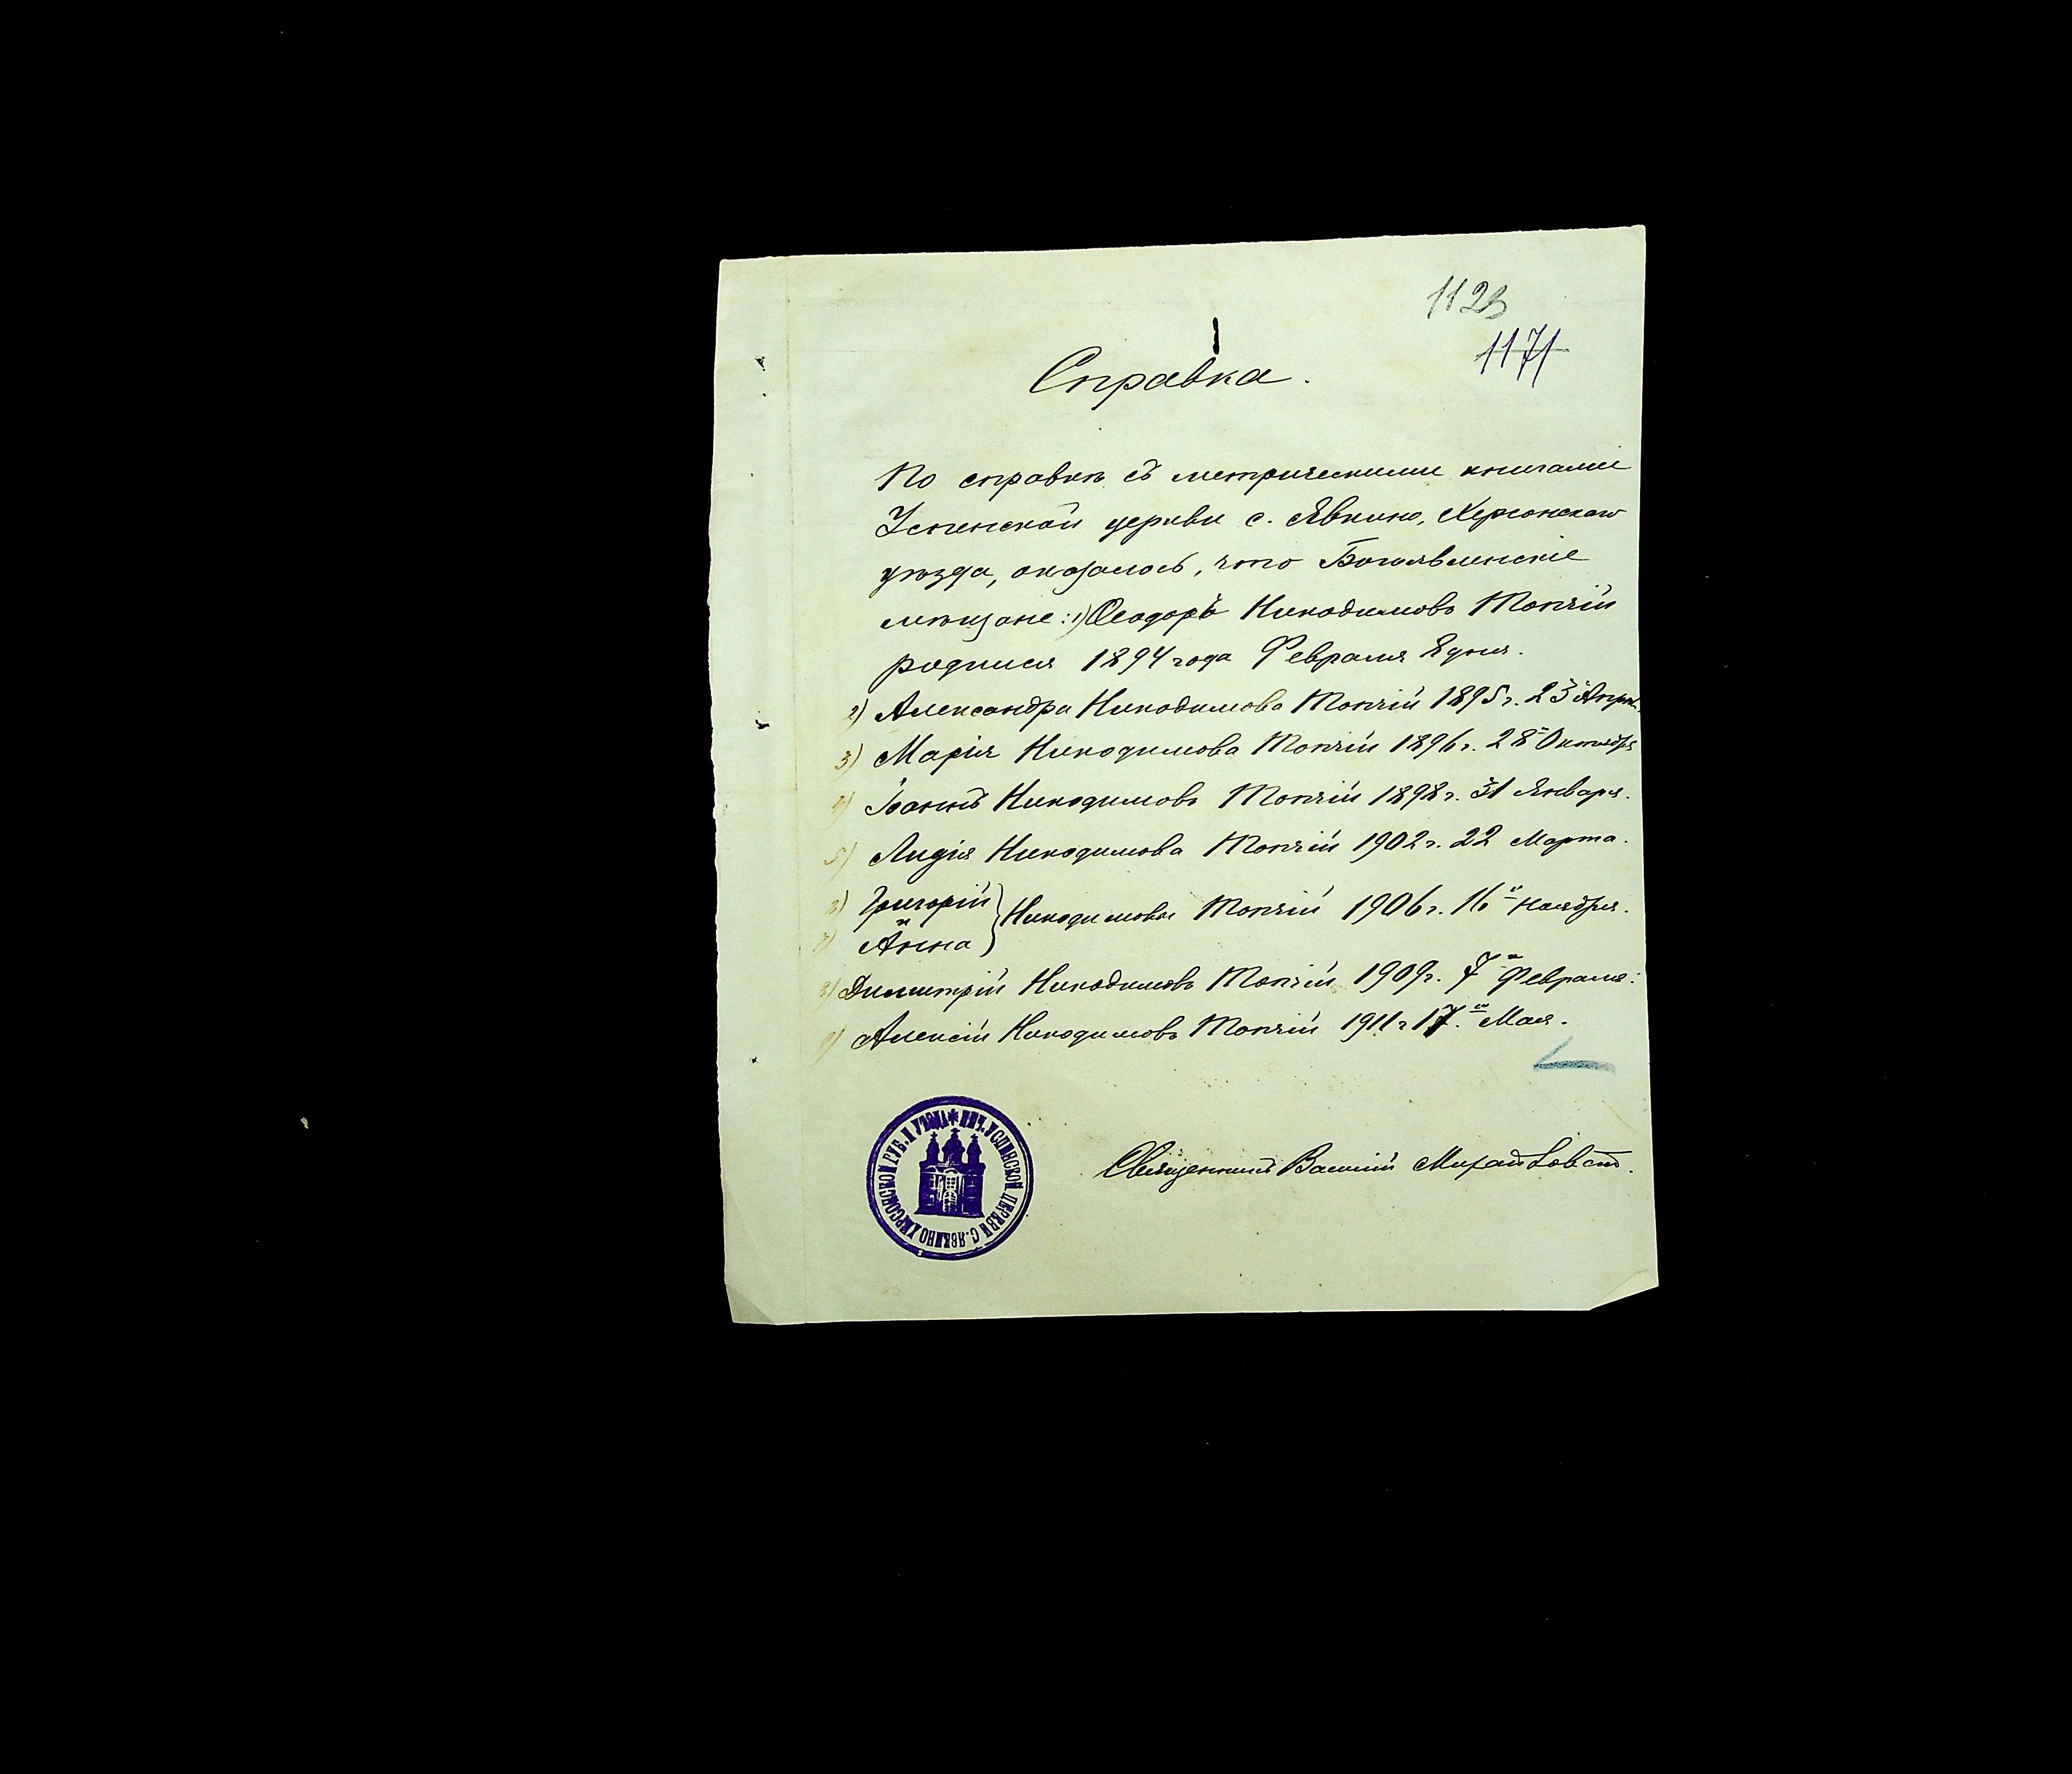 1123
1171
Справка.
По справкѣ съ метрическими книгами
Успенской церкви с. Явкино, Херсонскаго
уѣзда, оказалось, что Богоявленскіе
мѣщане: 1) Ѳеодоръ Никодимовъ Топчій
родился 1894 года Февраля 8 дня.
2) Александра Никодимова Топчій 1895 г. 23 Апрѣл.
3) Марія Никодимова Топчій 1896 г. 28 Октября
4) Іоаннъ Никодимовъ Топчій 1898 г. 31 Января.
5) Лидія Никодимова Топчій 1902 г. 22 Марта.
6) Григорій
и Никодимовы Топчій 1906 г. 16 Ноября.
7) Анна
8) Димитрій Никодимовъ Топчій 1909 г. 7 Февраля.
9) Алексій Никодимовъ Топчій 1911 г 17. Мая.
Священникъ Василій
ПЕЧ. УСПЕНСКОЙ ЦЕРКВИ С. ЯВКИНО ХЕРСОНСКОЙ ГУБ. И УѢЗДА